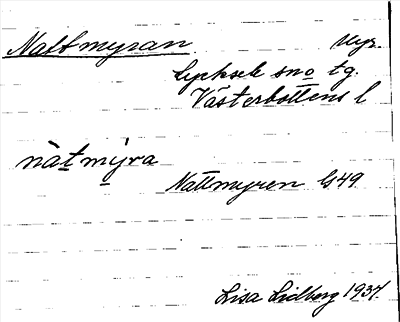 Nattmyran Myr.
Lycksele sn o tg.
Västerbottens l
nàt mýra
Nattmyren GS49
Lisa Lidberg 1937.